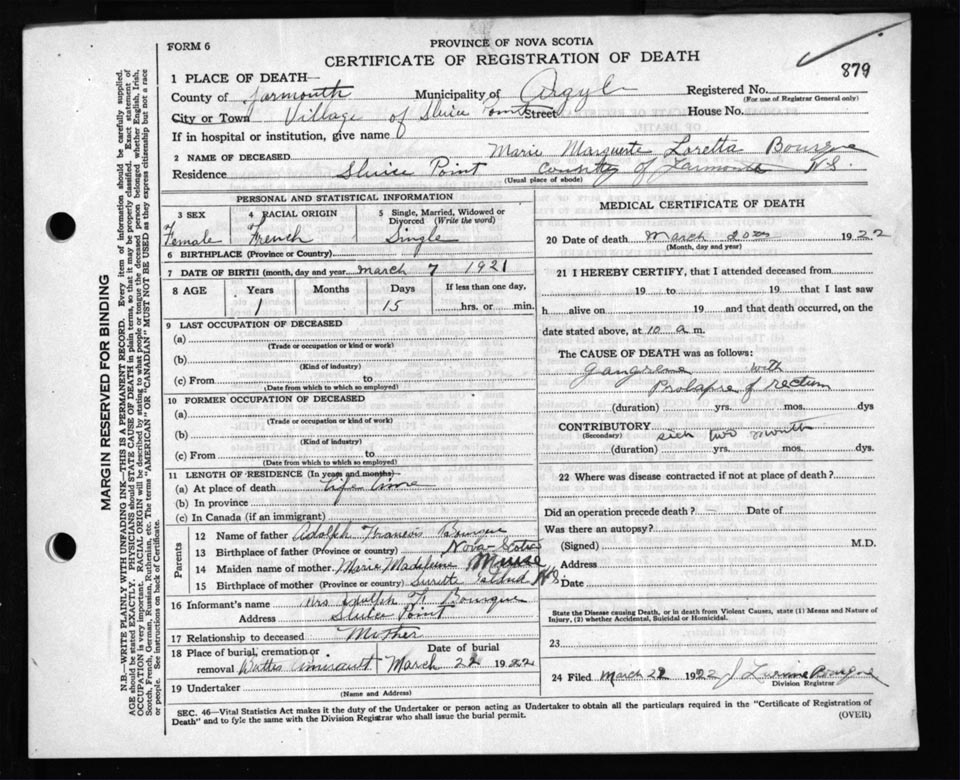 FORM 6
PROVINCE OF NOVA SCOTIA
CERTIFICATE OF REGISTRATION OF DEATH
879
1 PLACE OF DEATH—
County of Yarmouth Municipality of Argyle Registered No.
(For use of Registrar General only)
City or Town Village of Sluice Point Street House No.
If in hospital or institution, give name
2 NAME OF DECEASED Marie Marguerite Loretta Bourque
Residence Sluice Point County of Yarmouth N.S.
(Usual place of abode)
PERSONAL AND STATISTICAL INFORMATION
3 SEX Female
4 RACIAL ORIGIN French
5 Single, Married, Widowed or Divorced (Write the word) Single
6 BIRTHPLACE (Province or Country)
7 DATE OF BIRTH (month, day and year) March 7 1921
8 AGE Years Months Days If less than one day,
1 15 hrs. or min.
9 LAST OCCUPATION OF DECEASED
(a)
(Trade or occupation or kind or work)
(b)
(Kind of industry)
(c) From to
(Date from which to which so employed)
10 FORMER OCCUPATION OF DECEASED
(a)
(Trade or occupation or kind of work)
(b)
(Kind of industry)
(c) From to
(Date from which to which so employed)
11 LENGTH OF RESIDENCE (In years and months)—
(a) At place of death Life time
(b) In province
(c) In Canada (if an immigrant)
Parents
12 Name of father Adolph Francis Bourque
13 Birthplace of father (Province or country) Nova Scotia
14 Maiden name of mother Marie Madeleine Muise
15 Birthplace of mother (Province or country) Surette Island N.S.
16 Informant's name Mrs Adolph F. Bourque
Address Sluice Point
17 Relationship to deceased Mother
18 Place of burial, cremation or removal Date of burial
Amirault March 22 1922
19 Undertaker
(Name and Address)
MEDICAL CERTIFICATE OF DEATH
20 Date of death March 20 1922
(Month, day and year)
21 I HEREBY CERTIFY, that I attended deceased from
19 to 19 that I last saw
h alive on 19 and that death occurred, on the
date stated above, at 10 a m.
The CAUSE OF DEATH was as follows:
Gangrene with
Prolapse of rectum
(duration) yrs. mos. dys
CONTRIBUTORY sick two month
(Secondary)
(duration) yrs. mos. dys
22 Where was disease contracted if not at place of death?
Did an operation precede death? Date of
Was there an autopsy?
(Signed) M.D.
Address
Date
State the Disease causing Death, or in death from Violent Causes, state (1) Means and Nature of
Injury, (2) whether Accidental, Suicidal or Homicidal.
23
24 Filed March 22 1922 J Bourque
Division Registrar
SEC. 46—Vital Statistics Act makes it the duty of the Undertaker or person acting as Undertaker to obtain all the particulars required in the "Certificate of Registration of
Death" and to fyle the same with the Division Registrar who shall issue the burial permit. (OVER)
MARGIN RESERVED FOR BINDING
N.B.—WRITE PLAINLY WITH UNFADING INK—THIS IS A PERMANENT RECORD. Every item of information should be carefully supplied.
AGE should be stated EXACTLY. PHYSICIANS should STATE CAUSE OF DEATH in plain terms, so that it may be properly classified. Exact statement of
OCCUPATION is very important. RACIAL ORIGIN will be described by stating to what people or tongue the deceased person belonged whether English, Irish,
Scotch, French, German, Russian, Ruthenian, etc. The terms "AMERICAN" OR "CANADIAN" MUST NOT BE USED as they express citizenship but not a race
or people. See instructions on back of Certificate.